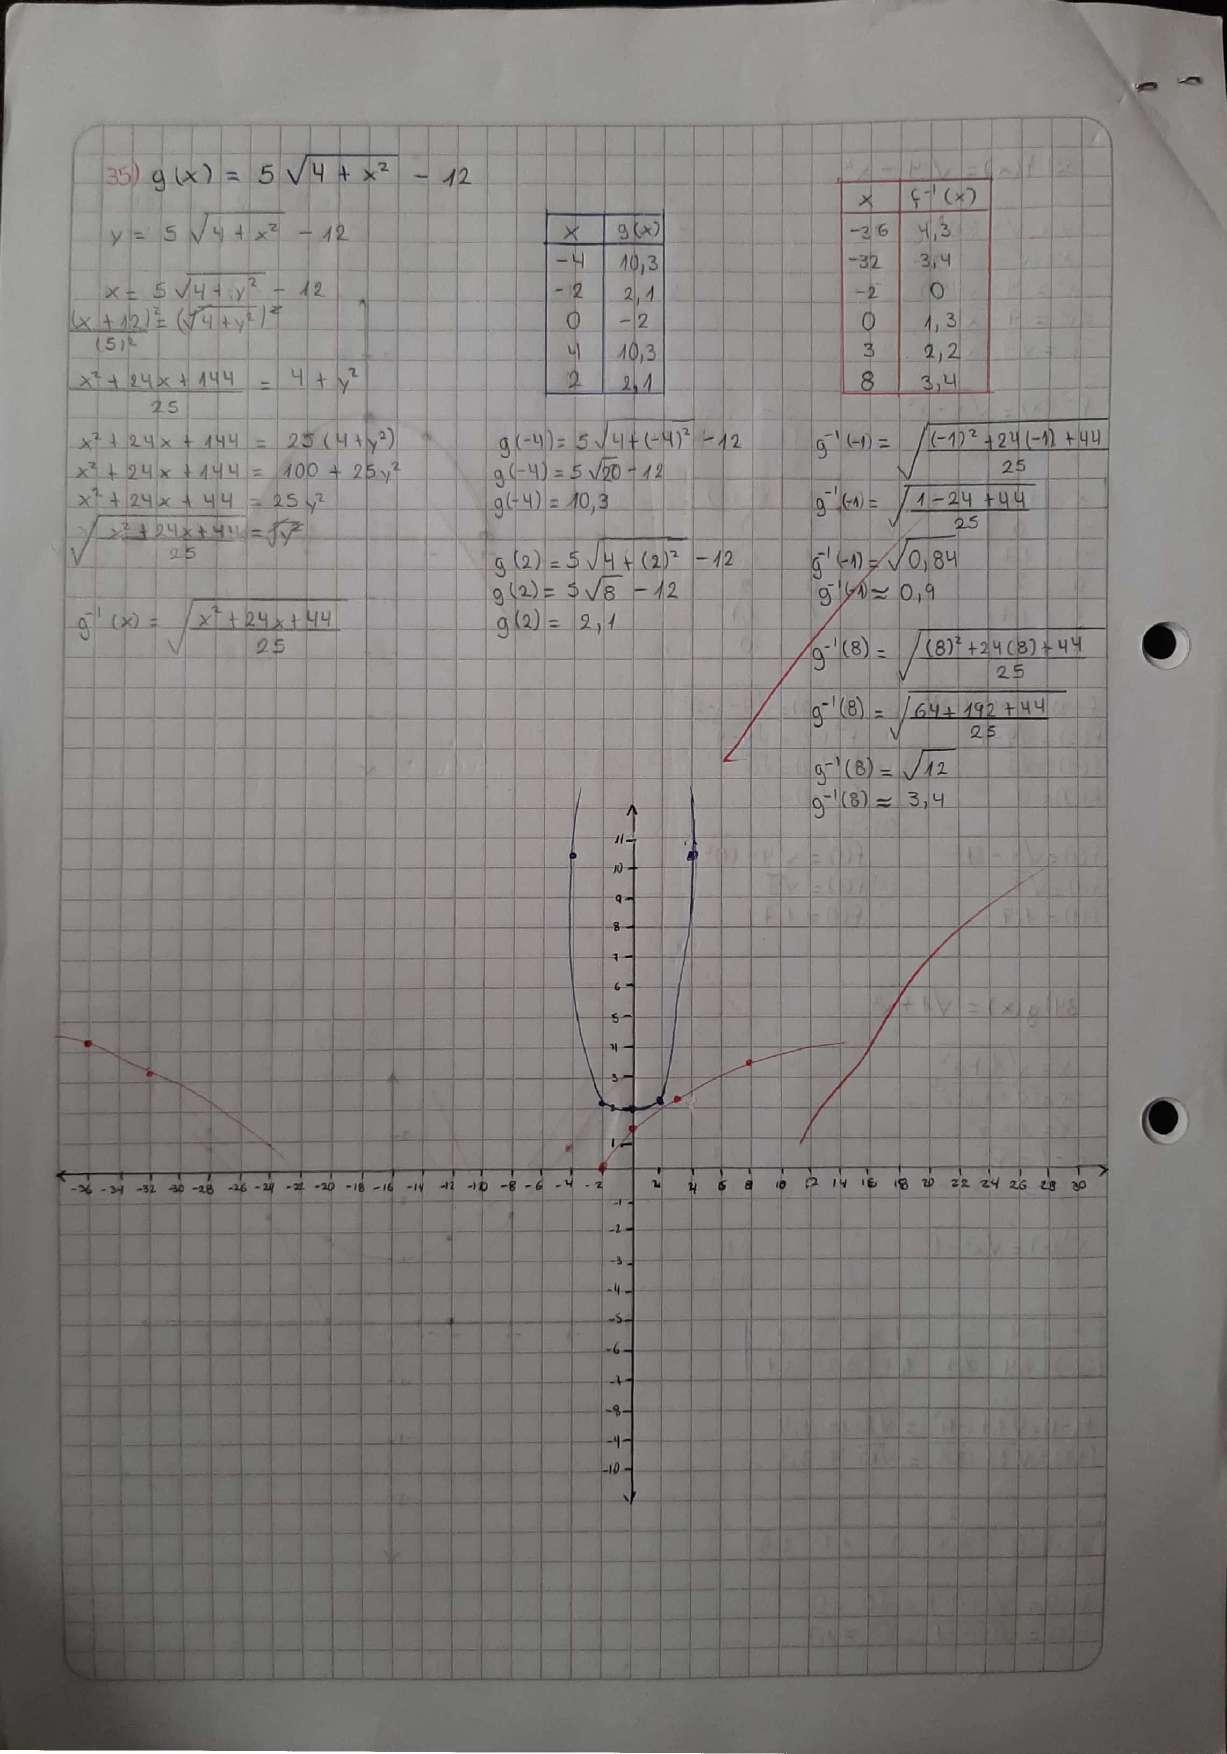 35) g(x) = 5 √(4 + x²) - 12
y = 5 √(4 + x²) - 12
x = 5 √(4 + y²) - 12
(x + 12)² / (5)² = (√(4 + y²))²
x² + 24x + 144 / 25 = 4 + y²
x² + 24x + 144 = 25 (4 + y²)
x² + 24x + 144 = 100 + 25y²
x² + 24x + 44 = 25y²
√(x² + 24x + 44 / 25) = √y²
g⁻¹(x) = √(x² + 24x + 44 / 25)
x g(x)
-4 10,3
-2 2,1
0 -2
4 10,3
2 2,1
g(-4) = 5√(4 + (-4)²) - 12
g(-4) = 5√20 - 12
g(-4) = 10,3
g(2) = 5√(4 + (2)²) - 12
g(2) = 5√8 - 12
g(2) = 2,1
x f⁻¹(x)
-36 4,3
-32 3,4
-2 0
0 1,3
3 2,2
8 3,4
g⁻¹(-1) = √((-1)² + 24(-1) + 44 / 25)
g⁻¹(-1) = √(1 - 24 + 44 / 25)
g⁻¹(-1) = √0,84
g⁻¹(-1) ≈ 0,9
g⁻¹(8) = √((8)² + 24(8) + 44 / 25)
g⁻¹(8) = √(64 + 192 + 44 / 25)
g⁻¹(8) = √12
g⁻¹(8) ≈ 3,4
11
10
9
8
7
6
5
4
3
2
1
-36 -34 -32 -30 -28 -26 -24 -22 -20 -18 -16 -14 -12 -10 -8 -6 -4 -2 2 4 6 8 10 12 14 16 18 20 22 24 26 28 30
-1
-2
-3
-4
-5
-6
-7
-8
-9
-10